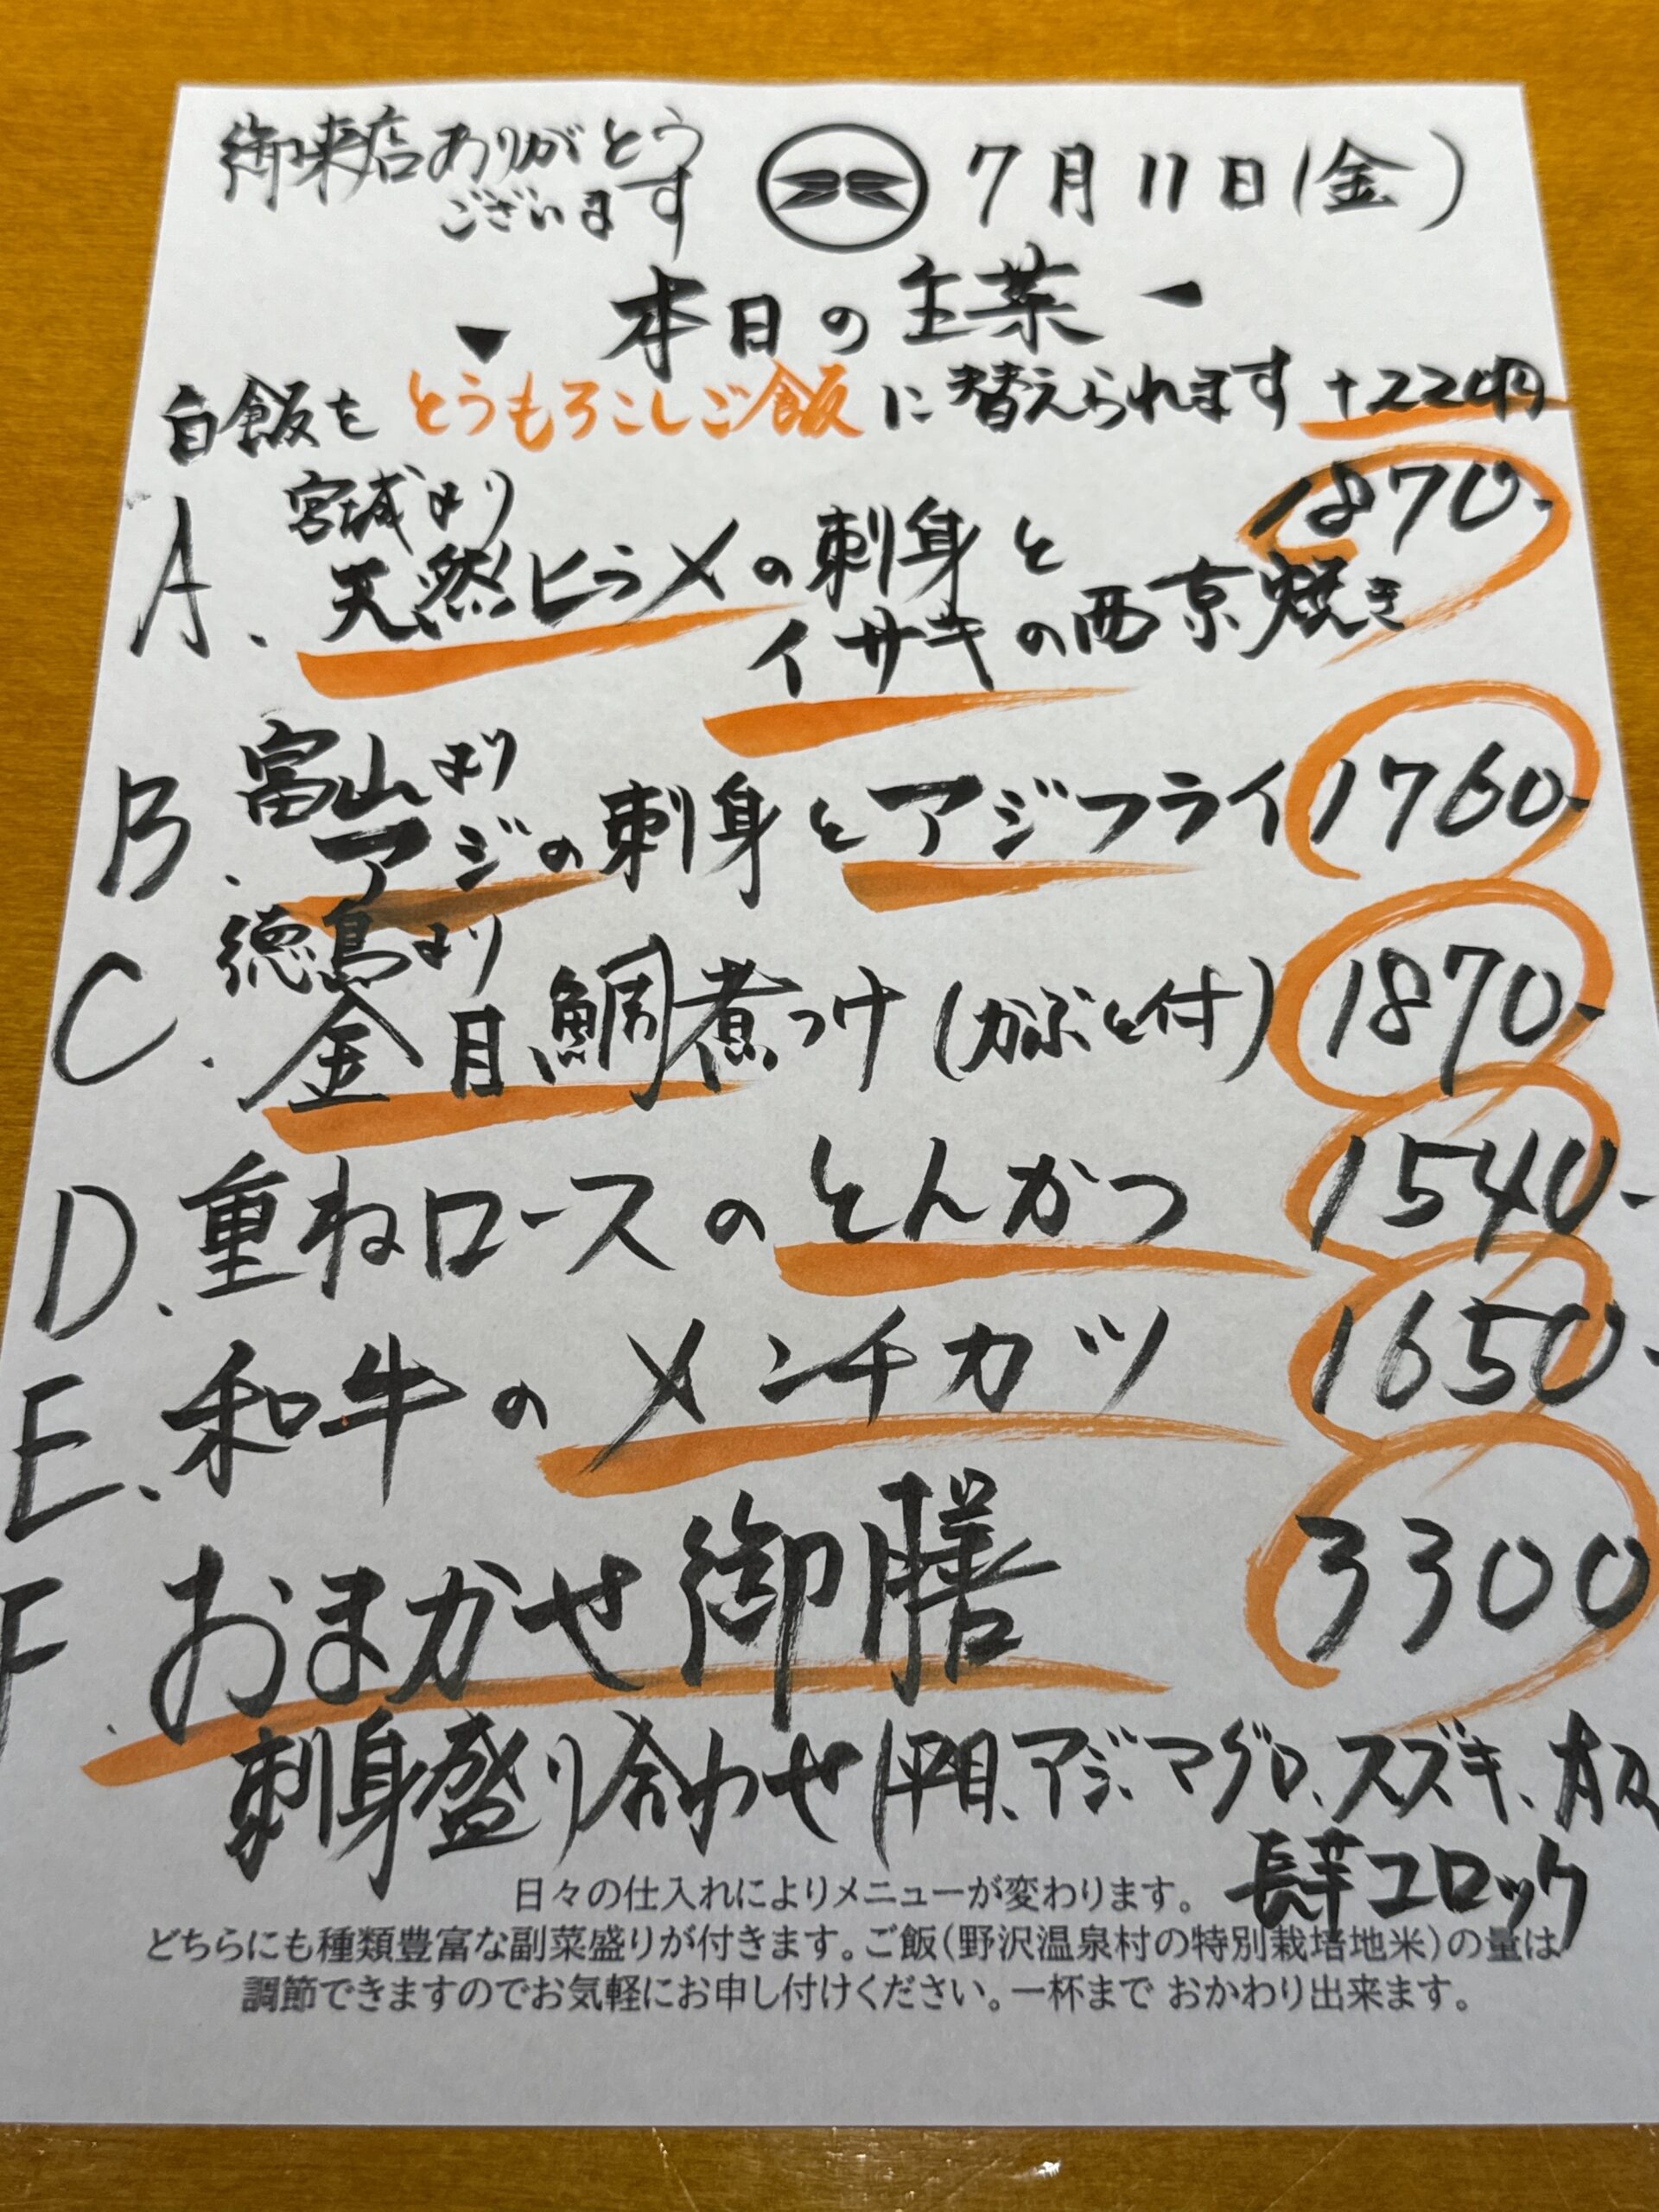 御来店ありがとう
ございます
7月11日(金)
本日の主菜
白飯を とうもろこしご飯 に替えられます +220円
宮城より
A. 天然ヒラメの刺身と 1870-
イサキの西京焼き
富山より
B. アジの刺身とアジフライ 1760-
徳島より
C. 金目鯛煮つけ(かぶと付) 1870-
D. 重ねロースのとんかつ 1540-
E. 和牛のメンチカツ 1650-
F. おまかせ御膳 3300
刺身盛り合わせ(平目、アジ、マグロ、スズキ、
長芋コロッケ
日々の仕入れによりメニューが変わります。
どちらにも種類豊富な副菜盛りが付きます。ご飯(野沢温泉村の特別栽培地米)の量は
調節できますのでお気軽にお申し付けください。一杯まで おかわり出来ます。